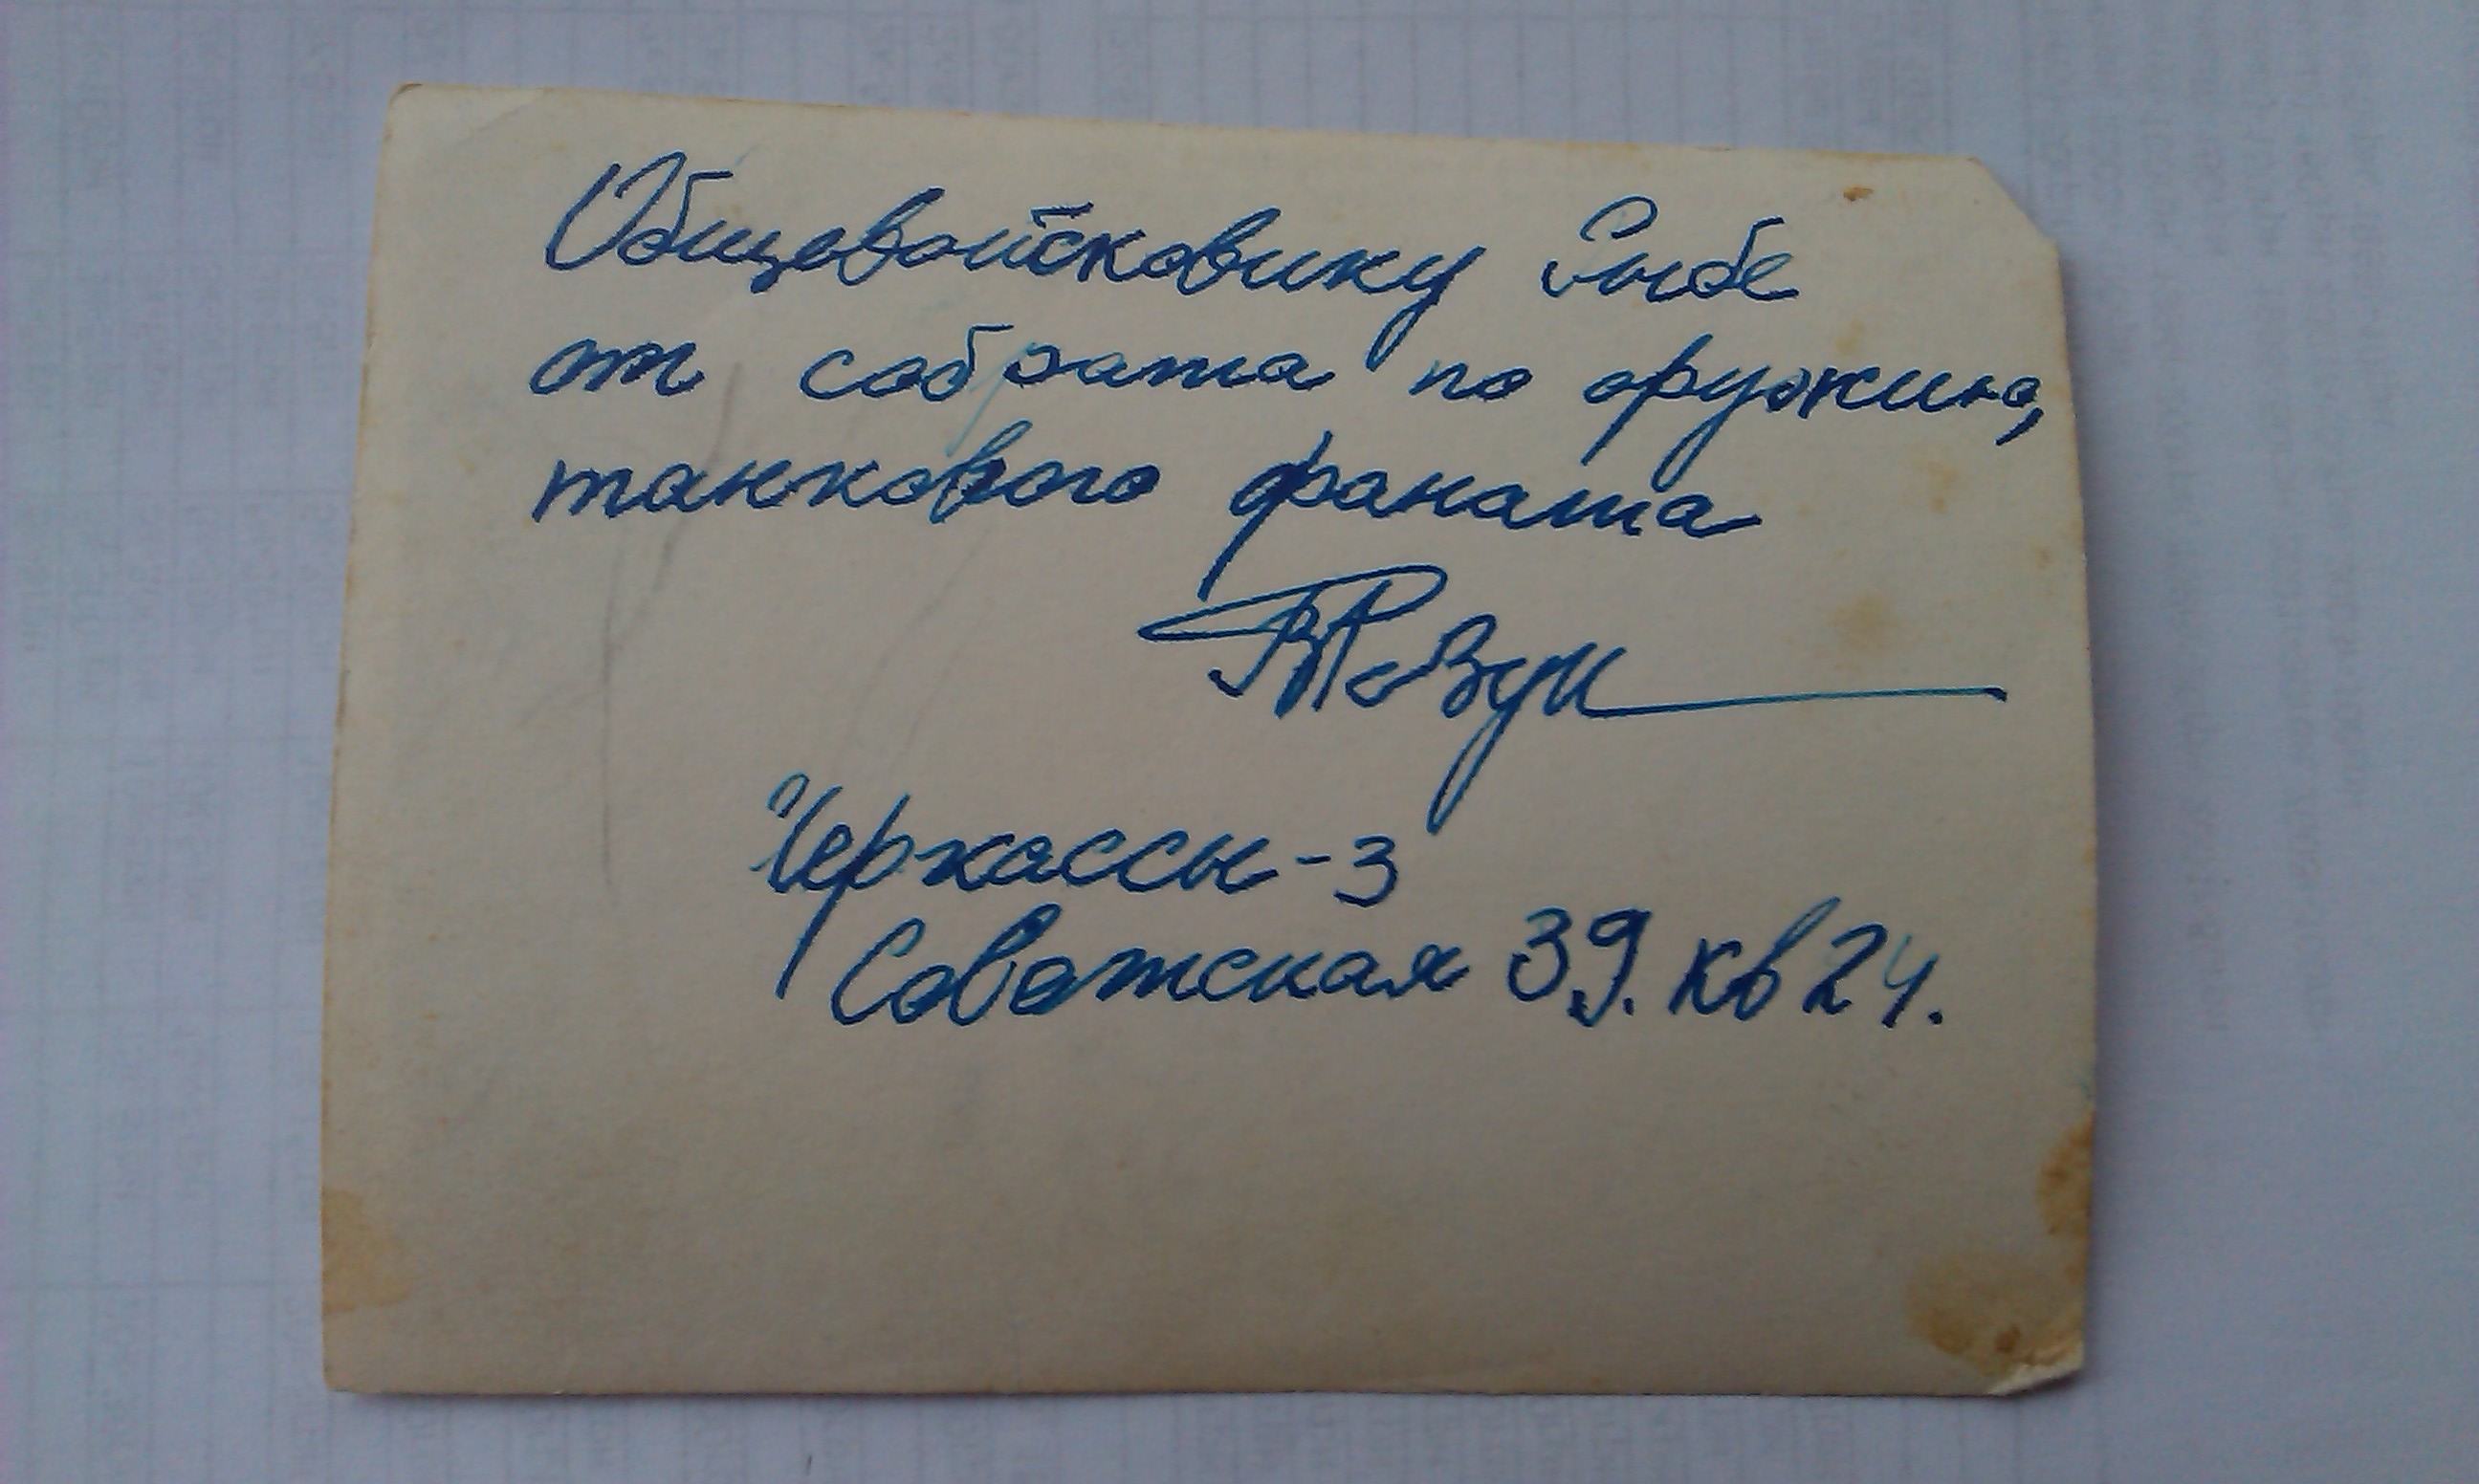 Общевойсковику Рыбе
от собрата по оружию,
танкового фаната
ВРезун
Черкассы-3
Советская 39. кв 24.